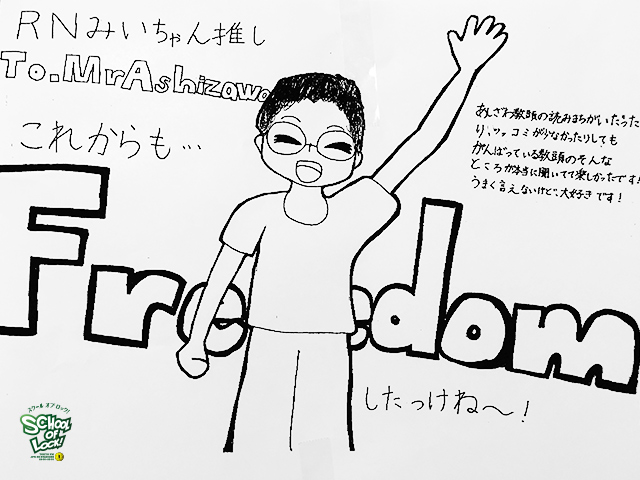 RNみいちゃん推し
To.MrAshizawa
これからも…
あしざわ教頭の読みまちがいだった
り、ツッコミが少なかったりしても
がんばっている教頭のそんな
ところが本当に聞いてて楽しかったです!
うまく言えないけど、大好きです!
Freedom
したっけね〜!
スクール オブ ロック!
SCHOOL
OF
LOCK!